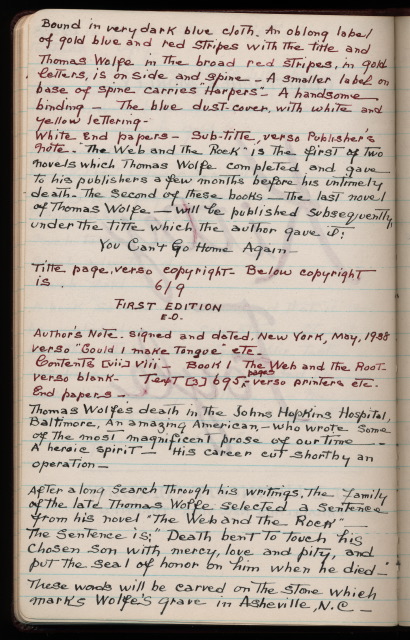 Bound in very dark blue cloth. An oblong label
of gold blue and red stripes with the title and
Thomas Wolfe in the broad red stripes, in gold
letters, is on side and spine - A smaller label on
base of spine carries "Harpers". A handsome
binding - The blue dust-cover, with white and
yellow lettering-
White End papers - Sub-title, verso Publisher's
note. "The Web and the Rock" is the first of two
novels which Thomas Wolfe completed and gave
to his publishers a few months before his untimely
death. The second of these books - the last novel
of Thomas Wolfe - will be published subsequently
under the title which the author gave it:
You Can't Go Home Again-
Title page, verso copyright- Below copyright
is
6/9
FIRST EDITION
E.O.
Author's Note. signed and dated, New York, May, 1938
verso "Could I make tongue etc-
Contents [vii] viii - Book I The Web and the Root-
verso blank- Text [3] 695, pages verso printers etc.
End papers -
Thomas Wolfe's death in the Johns Hopkins Hospital,
Baltimore, An amazing American,- who wrote some
of the most magnificent prose of our time -
A heroic spirit - His career cut short by an
operation-
After a long search through his writings, the family
of the late Thomas Wolfe selected a sentence
from his novel "The Web and the Rock" -
The Sentence is; "Death bent to touch his
chosen son with mercy, love and pity, and
put the seal of honor on him when he died-"
These words will be carved on the stone which
marks Wolfe's grave in Asheville, N.C -